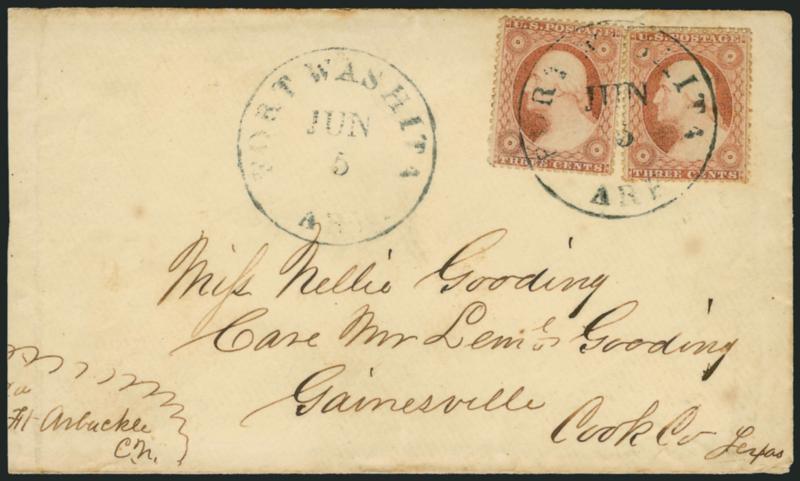 U.S. POSTAGE
THREE CENTS
U.S. POSTAGE
THREE CENTS
FORT WASHITA
JUN
5
ARK
FORT WASHITA
JUN
5
ARK
Miss Nellie Gooding
Care Mr Leml Gooding
Gainesville
Cook Co Texas
Ft Arbuckle
C.N.